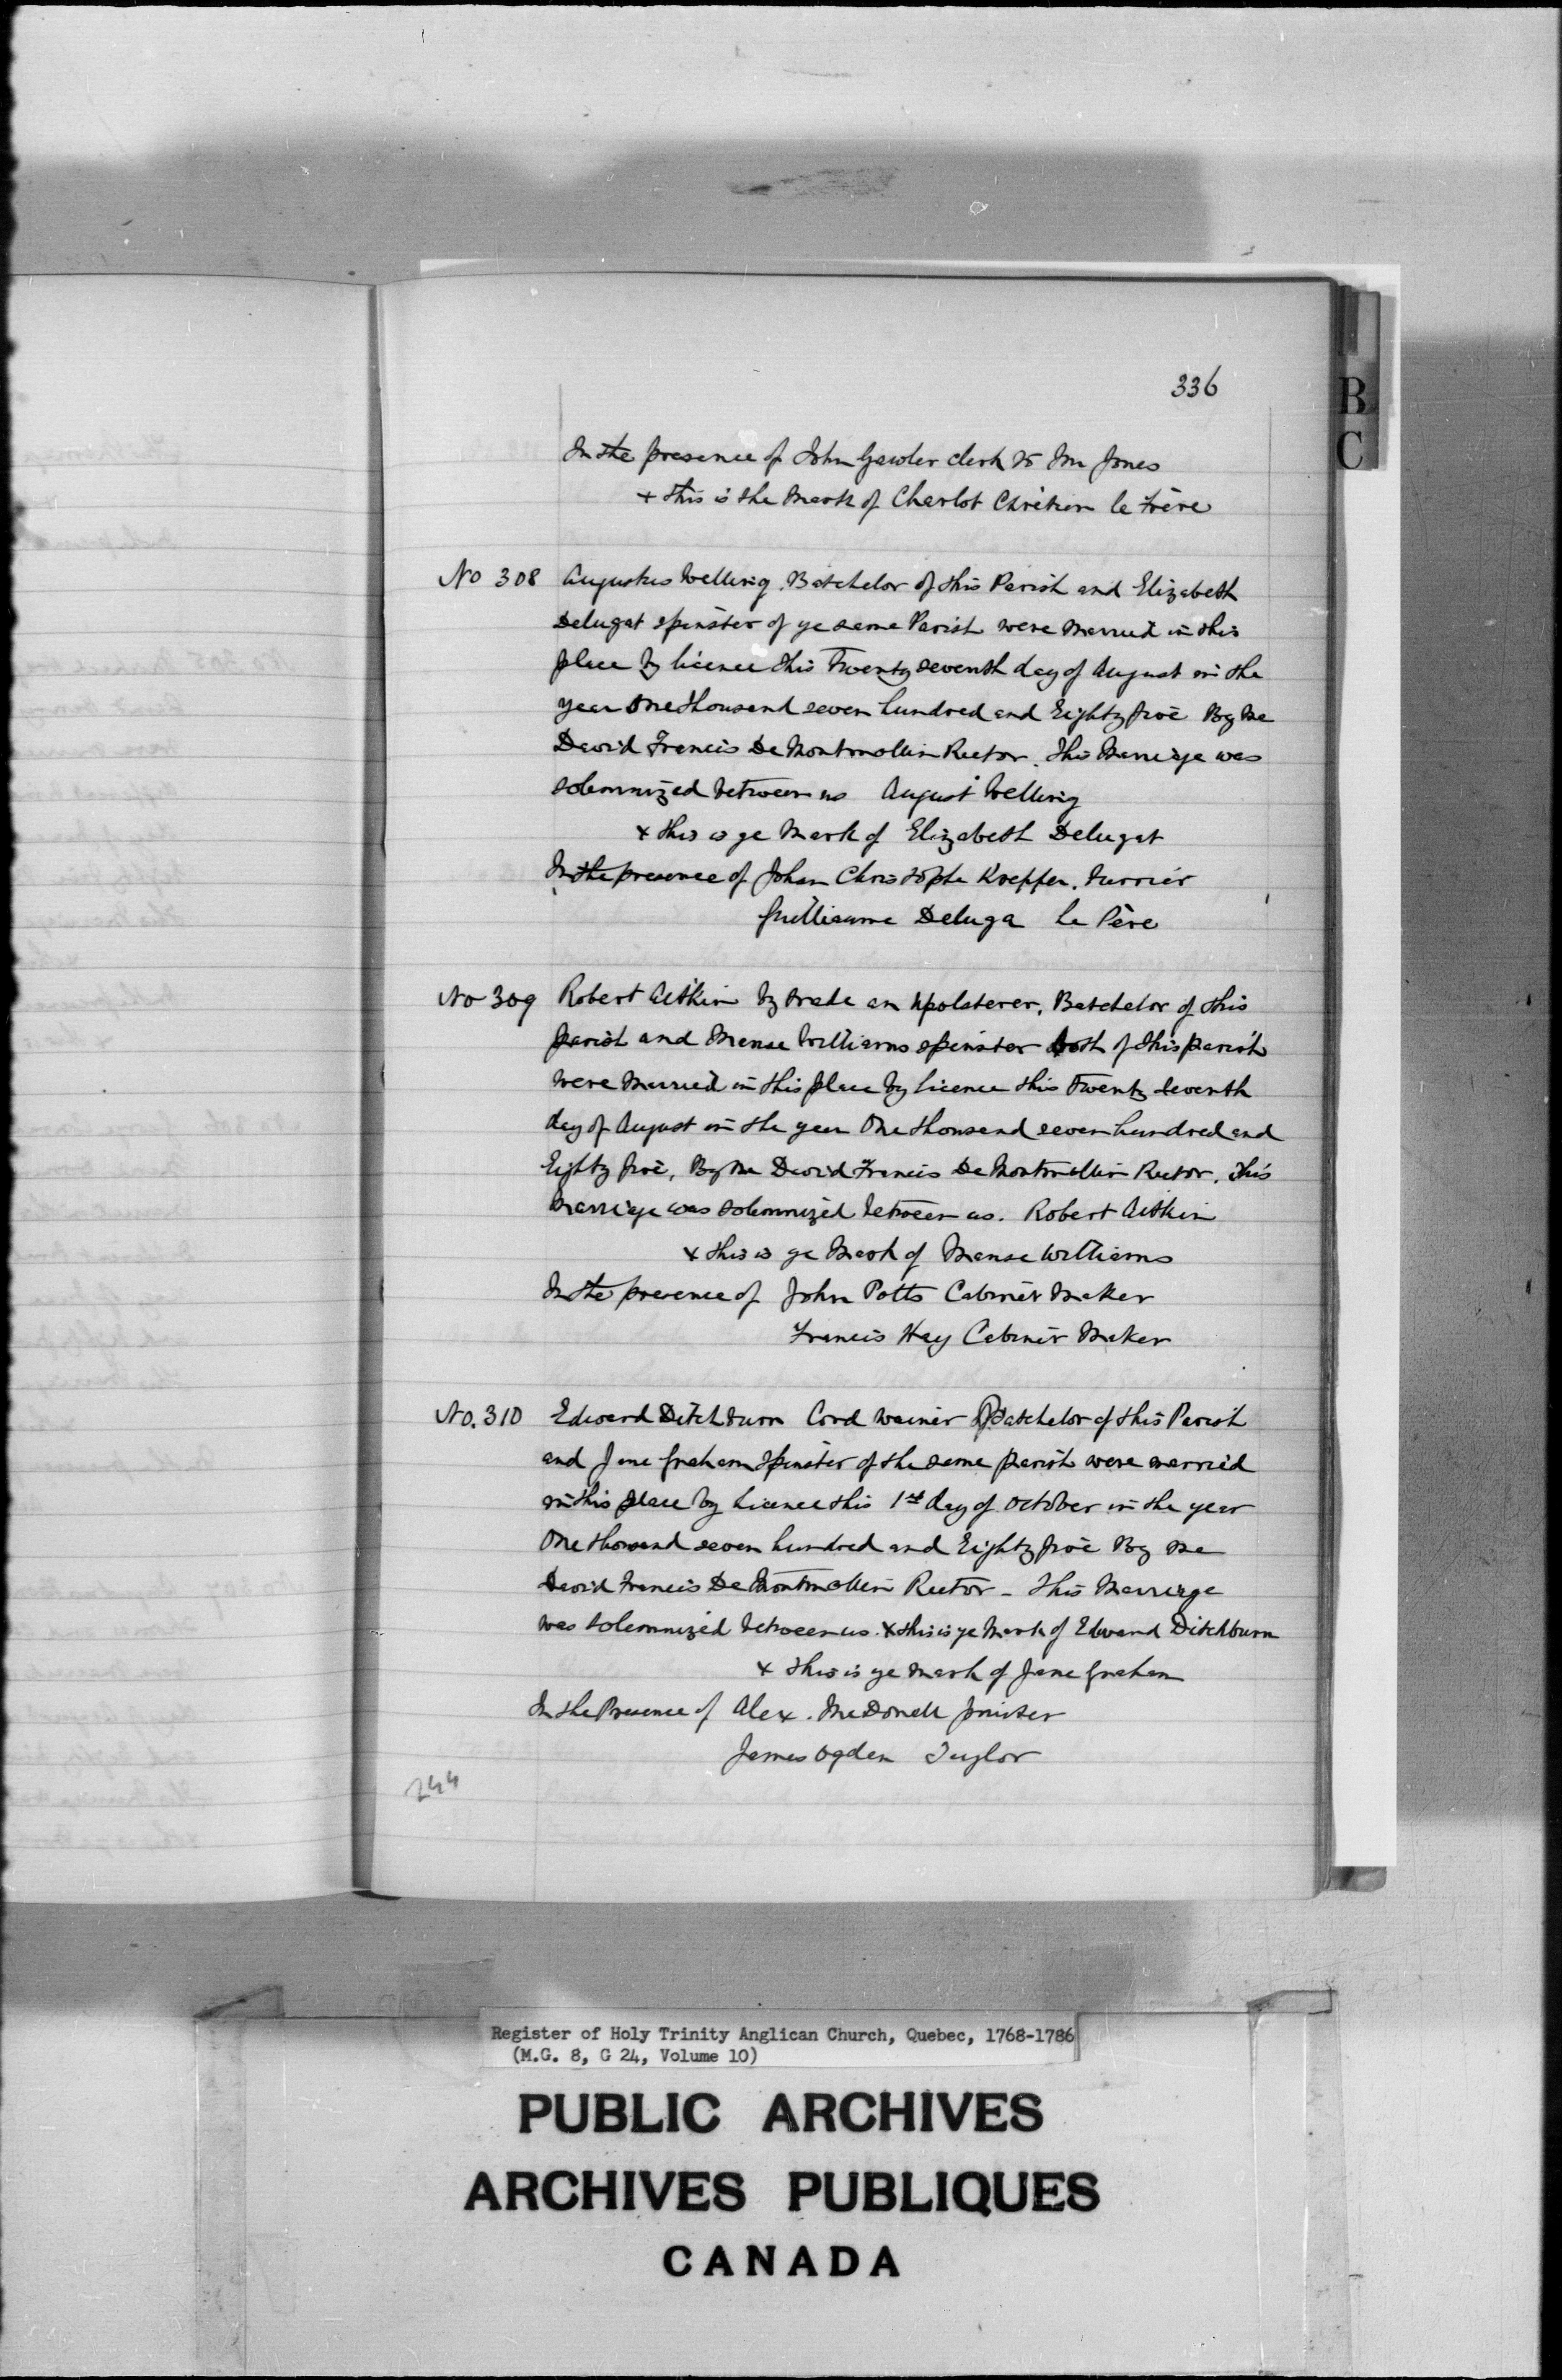 336
In the presence of John Gawler clerk to Mr Jones
+ this is the Mark of Charlot Chrétien le frère
No 308 Augustus Welling. Batchelor of this Parish and Elizabeth
Delugat spinster of ye same Parish were Married in this
place by licence this Twenty seventh day of August in the
year One thousand seven hundred and Eighty five By Me
David Francis De Montmollin Rector. This Marriage was
solemnized between us August Welling
+ this is ye Mark of Elizabeth Delugat
In the presence of Johan Christophe Kreffer. furrier
Guilliaume Deluga le Père
No 309 Robert Aitkin by trade an Upolsterer, Batchelor of this
parish and Manse Williams spinster both of this parish
were Married in this place by licence this Twenty seventh
day of August in the year One thousand seven hundred and
Eighty five, By Me David Francis De Montmollin Rector. This
Marriage was solemnized between us. Robert Aitkin
+ this is ye Mark of Manse Williams
In the presence of John Potts Cabinet Maker
Francis Hay Cabinet Maker
No. 310 Edward Ditchburn Cord wainer Batchelor of this Parish
and Jane Graham Spinster of the same parish were married
in this place by Licence this 1st day of October in the year
One thousand seven hundred and Eighty five By me
David Francis De Montmollin Rector - This Marriage
was solemnized between us. + this is ye Mark of Edward Ditchburn
+ this is ye mark of Jane Graham
In the Presence of Alex. McDonell
James Ogden Taylor
244
Register of Holy Trinity Anglican Church, Quebec, 1768-1786
(M.G. 8, G 24, Volume 10)
PUBLIC ARCHIVES
ARCHIVES PUBLIQUES
CANADA
B
C